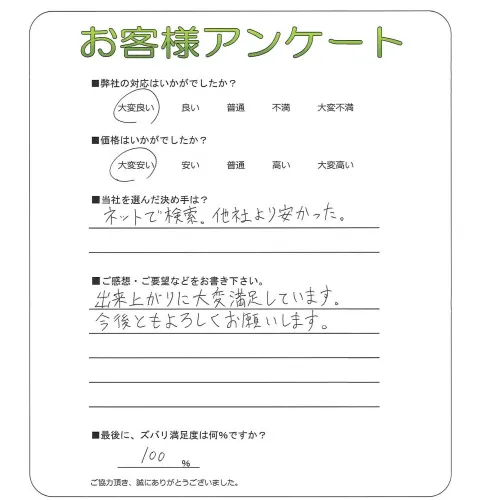 お客様アンケート
■弊社の対応はいかがでしたか？
大変良い 良い 普通 不満 大変不満
■価格はいかがでしたか？
大変安い 安い 普通 高い 大変高い
■当社を選んだ決め手は？
ネットで検索。他社より安かった。
■ご感想・ご要望などをお書き下さい。
出来上がりに大変満足しています。
今後ともよろしくお願いします。
■最後に、ズバリ満足度は何％ですか？
100 %
ご協力頂き、誠にありがとうございました。